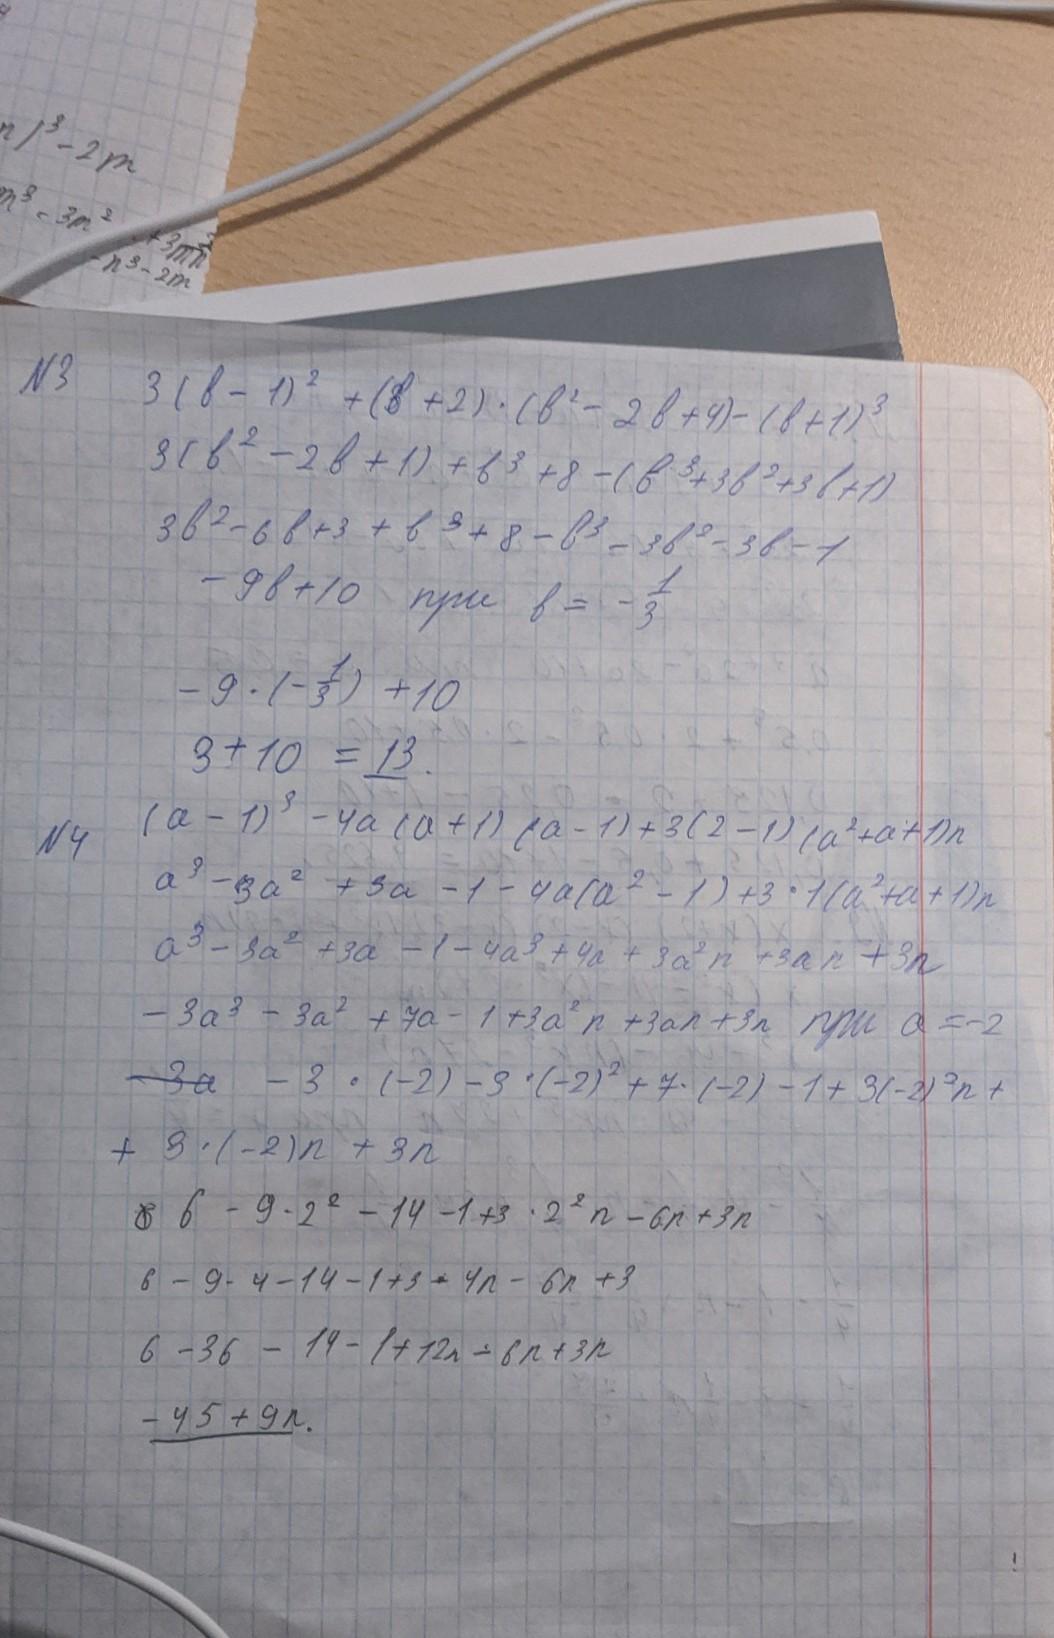 n)³ - 2m
m³ - 3m² +3mn²
- n³ - 2m
N3 3(b - 1)² + (b + 2) · (b² - 2b + 4) - (b + 1)³
3(b² - 2b + 1) + b³ + 8 - (b³ + 3b² + 3b + 1)
3b² - 6b + 3 + b³ + 8 - b³ - 3b² - 3b - 1
- 9b + 10 при b = - 1/3
- 9 · (- 1/3) + 10
3 + 10 = 13.
N4 (a - 1)³ - 4a (a + 1) (a - 1) + 3(2 - 1) (a² + a + 1)n
a³ - 3a² + 3a - 1 - 4a(a² - 1) + 3 · 1(a² + a + 1)n
a³ - 3a² + 3a - 1 - 4a³ + 4a + 3a²n + 3an + 3n
- 3a³ - 3a² + 7a - 1 + 3a²n + 3an + 3n при a = -2
- 3 · (-2) - 9 · (-2)² + 7 · (-2) - 1 + 3(-2)²n +
+ 3 · (-2)n + 3n
6 - 9 · 2² - 14 - 1 + 3 · 2²n - 6n + 3n
6 - 9 · 4 - 14 - 1 + 3 · 4n - 6n + 3
6 - 36 - 14 - 1 + 12n - 6n + 3n
- 45 + 9n.